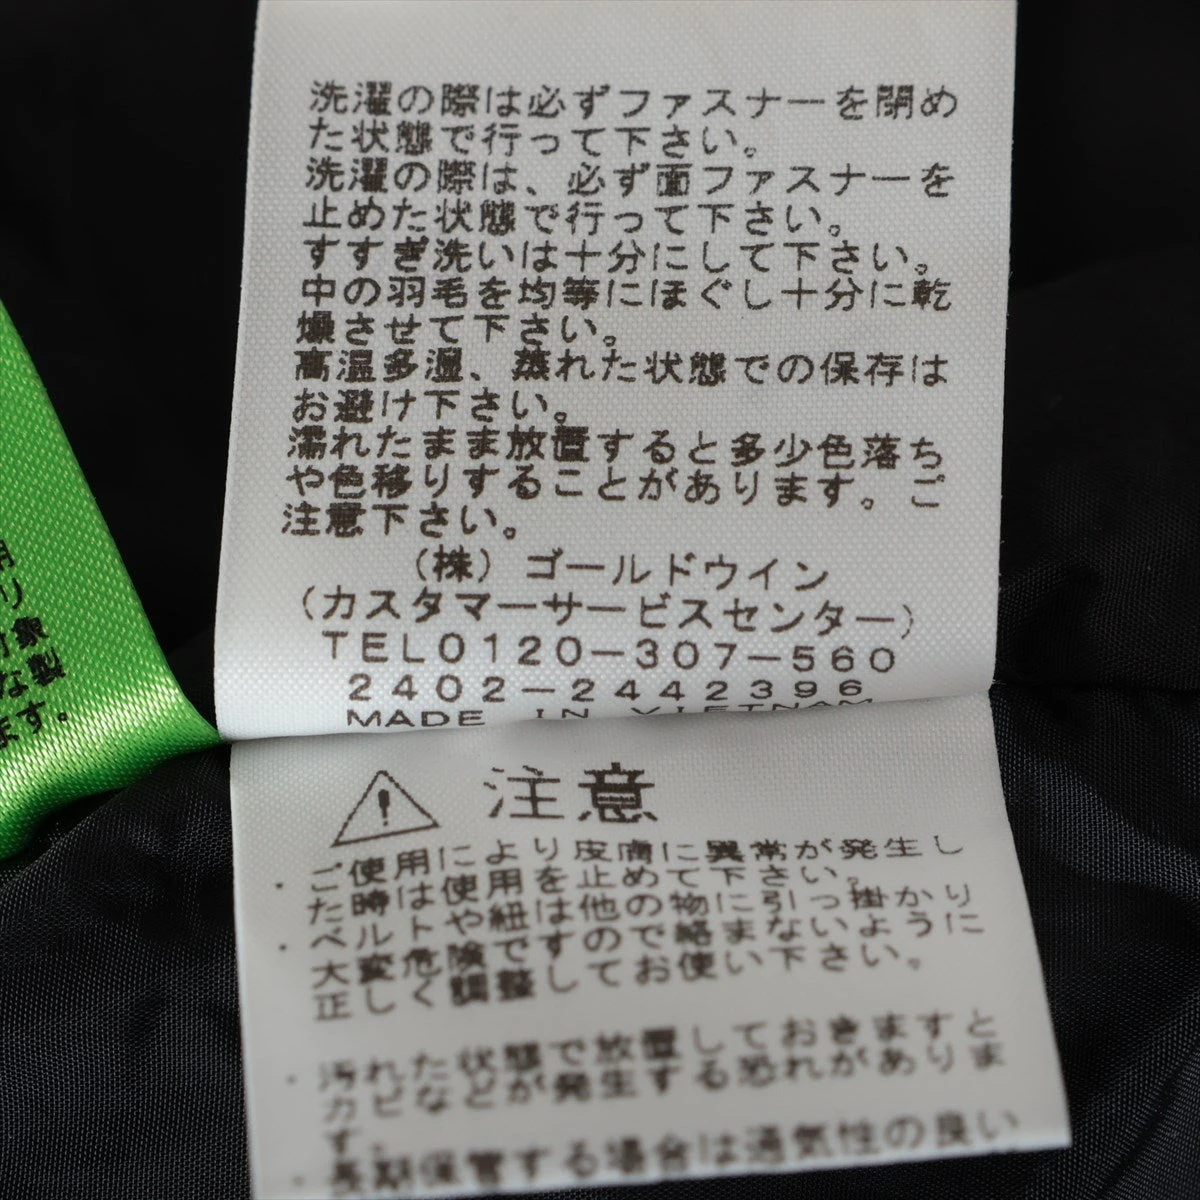 洗濯の際は必ずファスナーを閉め
た状態で行って下さい。
洗濯の際は、必ず面ファスナーを
止めた状態で行って下さい。
すすぎ洗いは十分にして下さい。
中の羽毛を均等にほぐし十分に乾
燥させて下さい。
高温多湿、蒸れた状態での保存は
お避け下さい。
濡れたまま放置すると多少色落ち
や色移りすることがあります。ご
注意下さい。
(株)ゴールドウイン
(カスタマーサービスセンター)
TEL0120-307-560
2402-2442396
MADE IN VIETNAM
注意
・ご使用により皮膚に異常が発生し
た時は使用を止めて下さい。
・ベルトや紐は他の物に引っ掛かり
大変危険ですので絡まないように
正しく調整してお使い下さい。
・汚れた状態で放置しておきますと
カビなどが発生する恐れがありま
す。
・長期保管する場合は通気性の良い
用
り
対象
な製
ます。